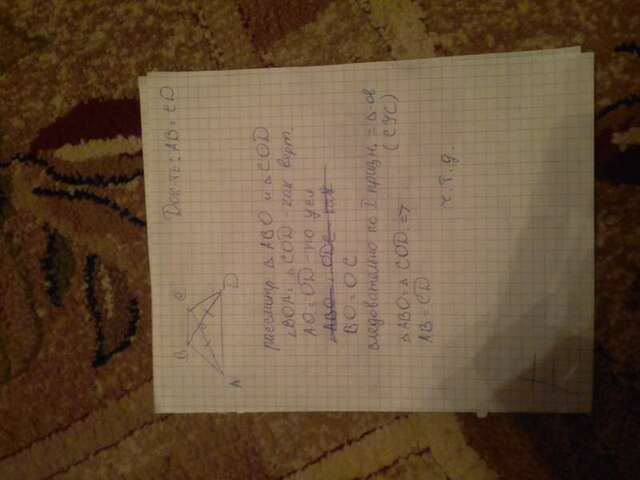 Док-ть: AB = CD
B
C
O
A
D
рассмотр △ABO и △COD
∠BOA = ∠COD - как верт.
AO = OD - по усл
BO = OC
следовательно по I призн. = △-ов
(СУС)
△ABO = △COD ⇒
AB = CD
ч.т.д.